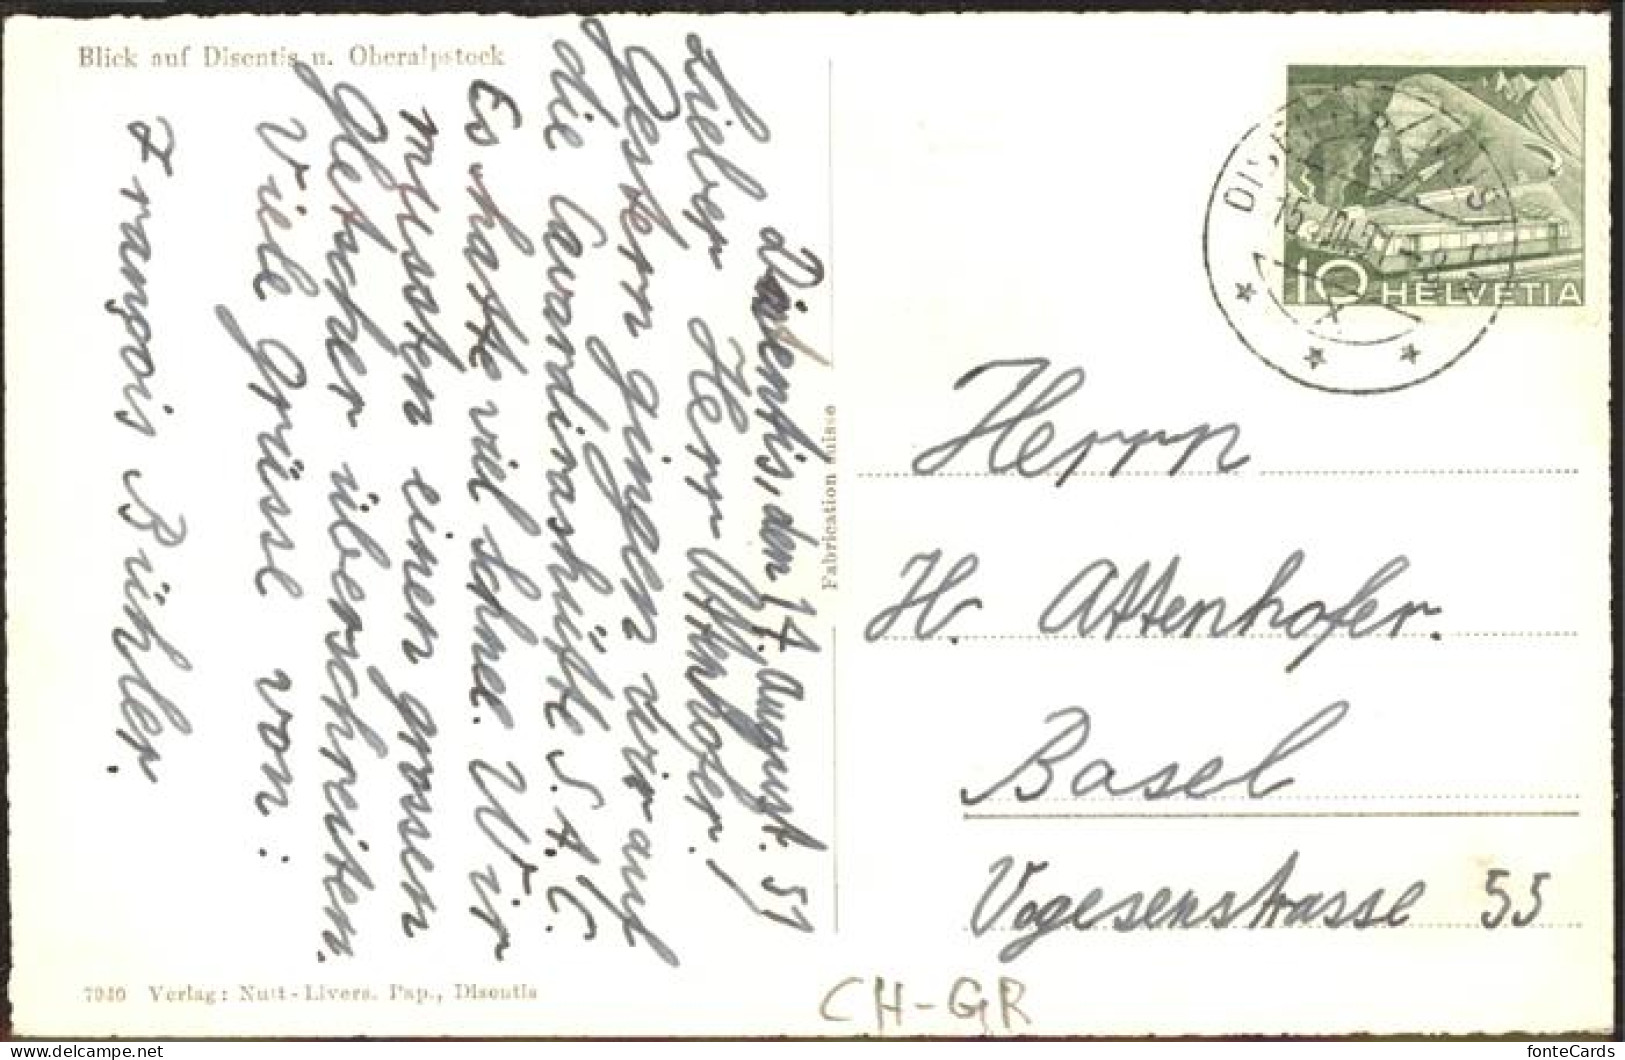 Blick auf Disentis u. Oberalpstock
Disentis, den 14. August. 51
Lieber Herr Attenhofer!
Gestern gingen wir auf
die Cavardirashütte S.A.C.
Es hatte viel Schnee. Wir
mussten einen grossen
Gletscher überschreiten.
Viele Grüsse von:
François Bühler.
7940 Verlag: Nutt-Livers. Pap., Disentis
Fabrication suisse
10 HELVETIA
Herrn
H. Attenhofer.
Basel
Vogesenstrasse 55
CH-GR
fonteCards